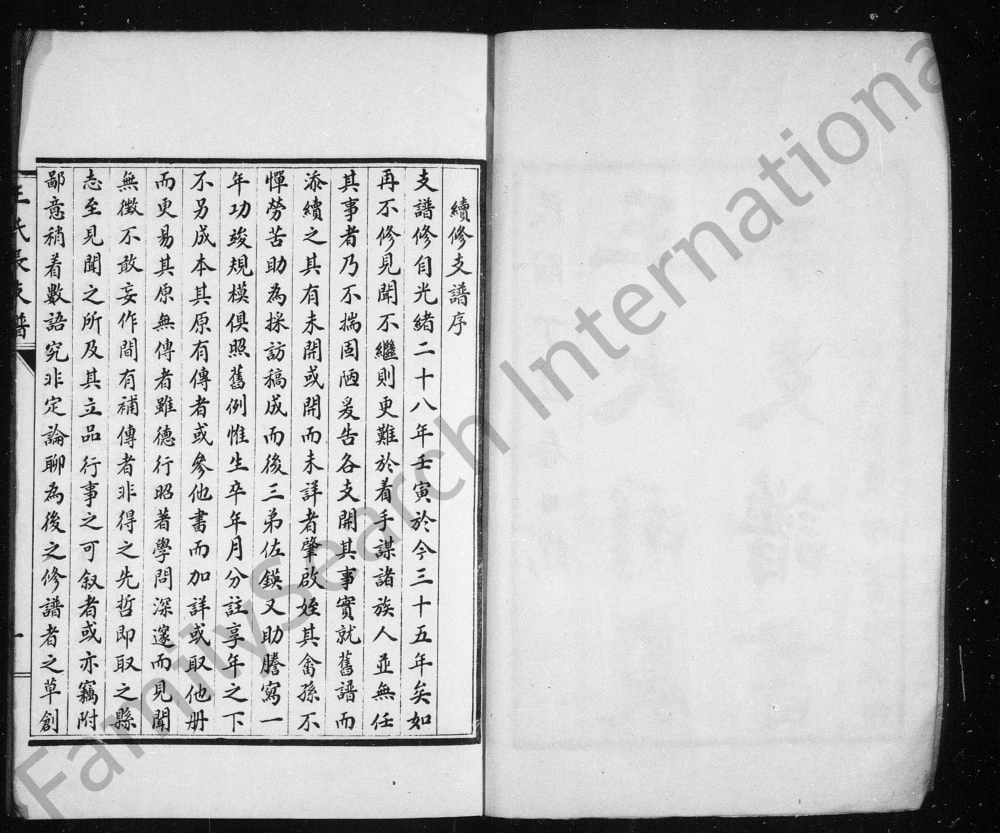 續修支譜序
支譜修自光緒二十八年壬寅於今三十五年矣如
再不修見聞不繼則更難於着手謀諸族人並無任
其事者乃不揣固陋爰告各支開其事實就舊譜而
添續之其有未開或開而未詳者肇啟姪其畬孫不
憚勞苦助為採訪稿成而後三弟佐鍈又助謄寫一
年功竣規模俱照舊例惟生卒年月分註享年之下
不另成本其原有傳者或參他書而加詳或取他册
而更易其原無傳者雖德行昭著學問深邃而見聞
無徵不敢妄作間有補傳者非得之先哲即取之縣
志至見聞之所及其立品行事之可叙者或亦竊附
鄙意稍着數語究非定論聊為後之修譜者之草創
王氏長支譜
一
FamilySearch International